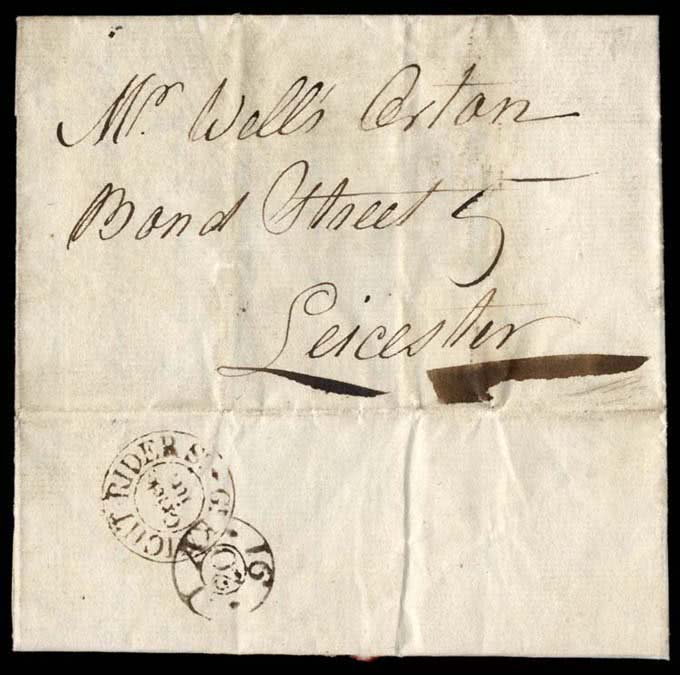 Mr. Wells Orton
Bond Street 5
Leicester
RIDER St.
16